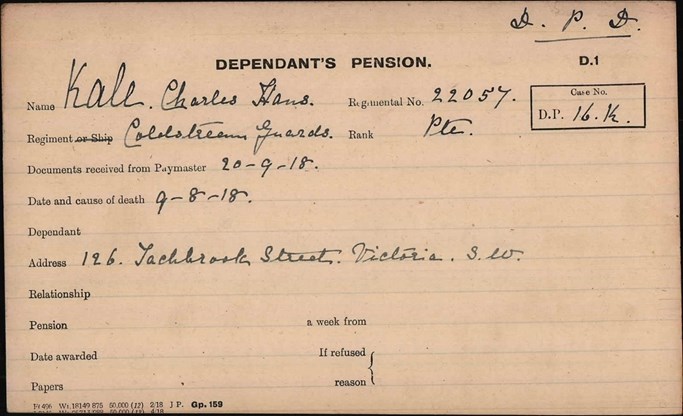 D. P. D.
DEPENDANT'S PENSION. D.1
Name Kall. Charles Hans. Regimental No. 22057. Case No.
D.P. 16.K.
Regiment or Ship Coldstream Guards. Rank Pte.
Documents received from Paymaster 20-9-18.
Date and cause of death 9-8-18.
Dependant
Address 126. Tachbrook Street. Victoria. S.W.
Relationship
Pension a week from
Date awarded If refused
Papers reason
Wt. 18149 875 50,000 (12) 2/18 J P. Gp. 159